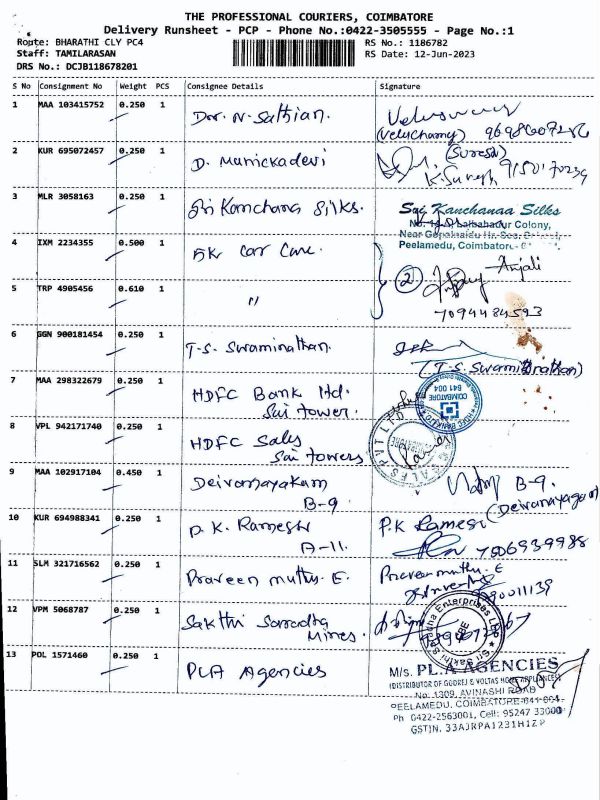 THE PROFESSIONAL COURIERS, COIMBATORE
Delivery Runsheet - PCP - Phone No.:0422-3505555 - Page No.:1
Route: BHARATHI CLY PC4
RS No.: 1186782
Staff: TAMILARASAN
RS Date: 12-Jun-2023
DRS No.: DCJB118678201
S No Consignment No Weight PCS Consignee Details Signature
1 MAA 103415752 0.250 1 N. Sathian.
(Veluchamy)
2 KUR 695072457 0.250 1 D. Manickadevi (Suresh)
K. Suresh
3 MLR 3058163 0.250 1 Sri Kanchana Silks. Sai Kanchanaa Silks
Lalbahadur Colony,
Peelamedu, Coimbatore-
4 IXM 2234355 0.500 1 car care.
Anjali
5 TRP 4905456 0.610 1 "
2
7094484593
6 GGN 900181454 0.250 1 T.S. Swaminathan.
(T.S. Swaminathan)
7 MAA 298322679 0.250 1 HDFC Bank Ltd.
Sai tower.
COIMBATORE
641 004
8 VPL 942171740 0.250 1 HDFC Sales
Sai towers
9 MAA 102917104 0.450 1 Deivanayakam B-9.
B-9 (Deivanayagam)
10 KUR 694988341 0.250 1 P.K. Ramesh P.K Ramesh
A-11. 7506939988
11 SLM 321716562 0.250 1 Praveen muthu. E. Praveen muthu. E
12 VPM 5068787 0.250 1 Sakthi Saradha
Mines.
Sri Sakthi Saradha Enterprises
13 POL 1571460 0.250 1 PLA Agencies
M/s. PL.A AGENCIES
(DISTRIBUTOR OF GODREJ & VOLTAS HOME APPLIANCES)
No: 1309, AVINASHI ROAD
PEELAMEDU, COIMBATORE-641 004.
Ph 0422-2563001, Cell: 95247 33000
GSTIN. 33AJRPA1231H1ZP